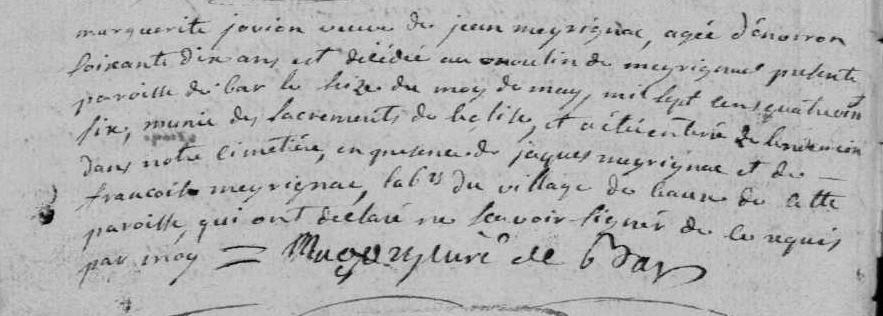 marguerite jovion veuve de jean meyrignac, agée d'énviron
soixante dix ans est décédée au moulin de meyrignac presente
paroisse de bar le seize du moy de may, mil sept cens quatrevint
six, munie des sacrements de l'eglise, et a été enterré le lendemain
dans notre cimetiére, en presence de jaques meyrignac et de
francois meyrignac, lab^rs du village de de cette
paroisse, qui ont declaré ne scavoir signér de ce requis
par moy = curé de bar